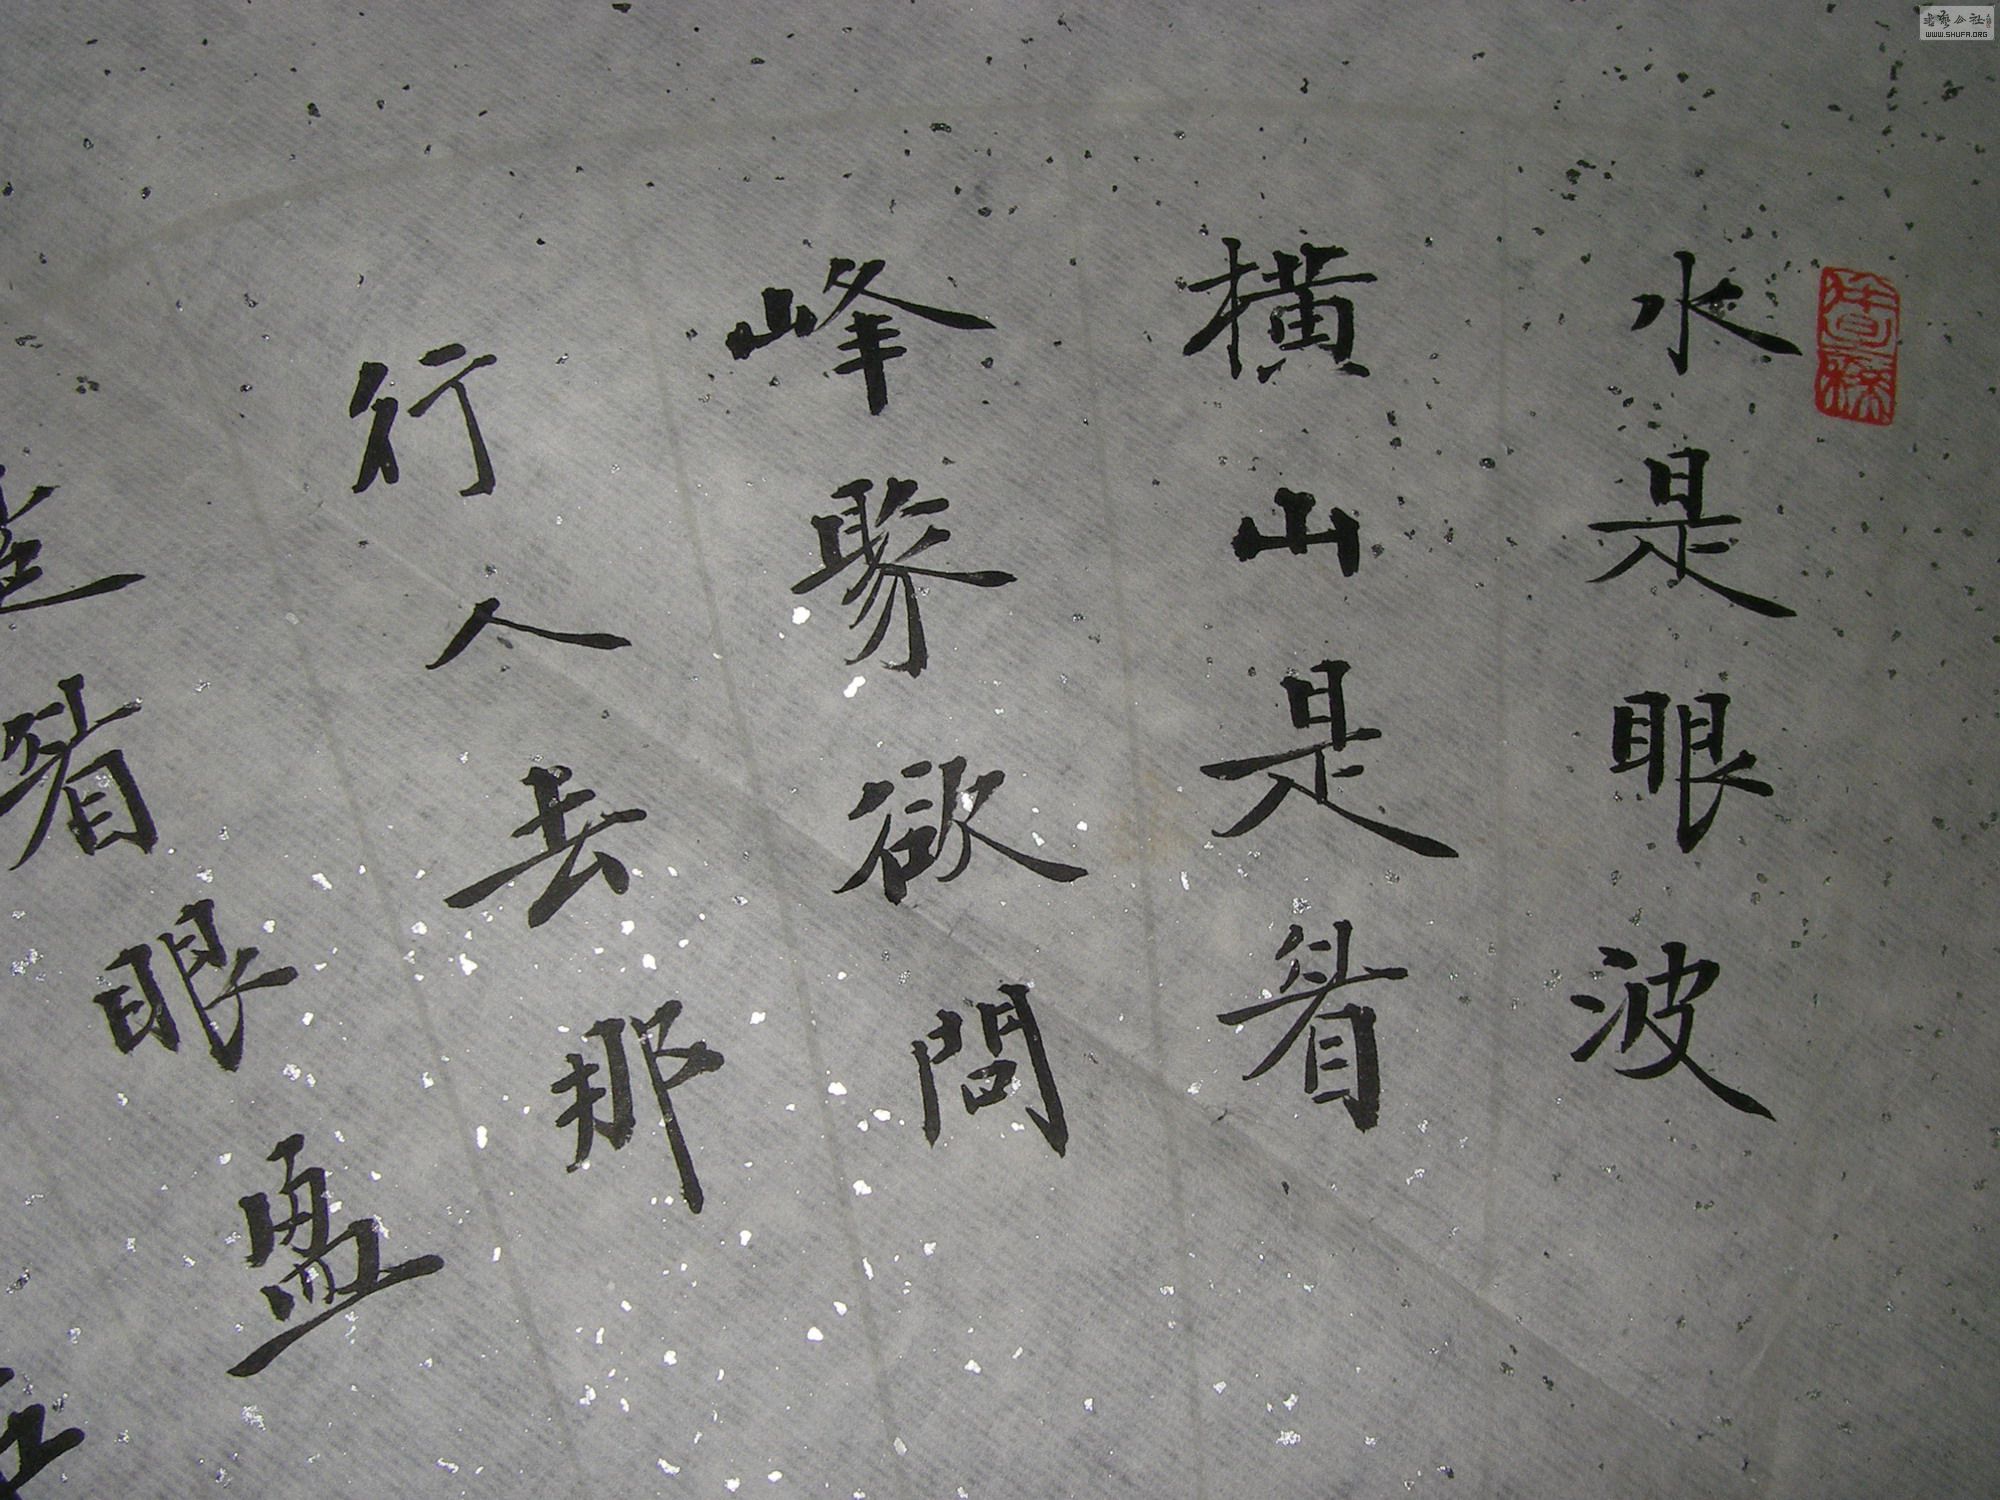 水是眼波
橫山是眉
峰聚欲問
行人去那
眉眼盈
書藝公社
WWW.SHUFA.ORG